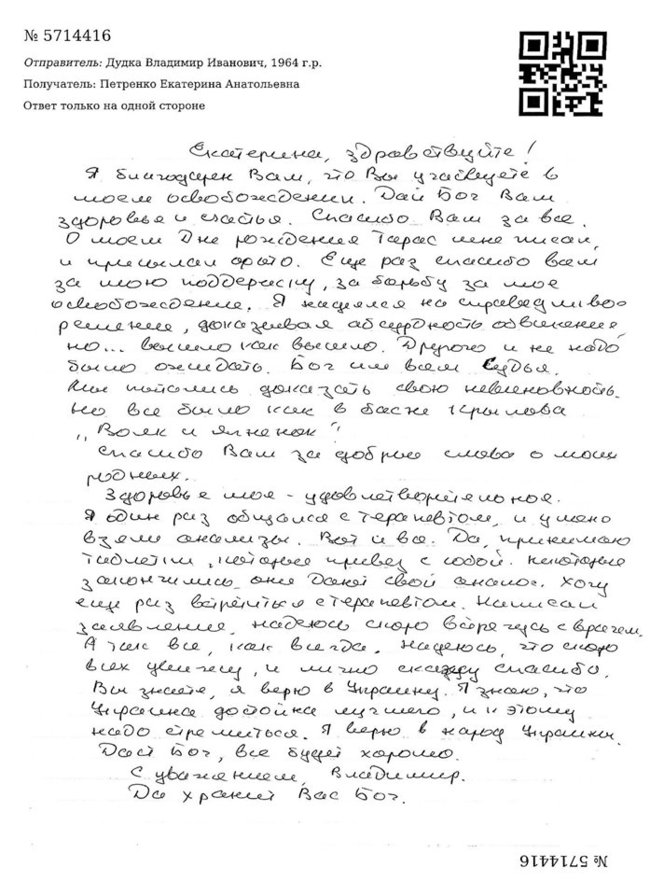 № 5714416
Отправитель: Дудка Владимир Иванович, 1964 г.р.
Получатель: Петренко Екатерина Анатольевна
Ответ только на одной стороне
Екатерина, здравствуйте!
Я благодарен Вам, что Вы участвуете в
моем освобождении. Дай Бог Вам
здоровья и счастья. Спасибо Вам за все.
О моем Дне рождения Тарас мне писал,
и присылал фото. Еще раз спасибо вам
за мою поддержку, за борьбу за мое
освобождение. Я надеялся на справедливое
решение, доказывая абсурдность обвинения,
но... вышло как вышло. Другого и не надо
было ожидать. Бог им всем Судья.
Мы пытались доказать свою невиновность.
Но все было как в басне Крылова
„Волк и ягненок"
Спасибо Вам за добрые слова о моих
родных.
Здоровье мое - удовлетворительное.
Я один раз общался с терапевтом, и у меня
взяли анализы. Вот и все. Да, принимаю
таблетки, которые привез с собой. Некоторые
закончились, они дают свой аналог. Хочу
еще раз встретиться с терапевтом. Написал
заявление, надеюсь скоро встречусь с врачем.
А так все, как всегда. Надеюсь, что скоро
всех увижу, и лично скажу спасибо.
Вы знаете, я верю в Украину. Я знаю, что
Украина достойна лучшего, и к этому
надо стремиться. Я верю в народ Украины.
Даст Бог, все будет хорошо.
С уважением, Владимир.
Да хранит Вас Бог.
№ 5714416